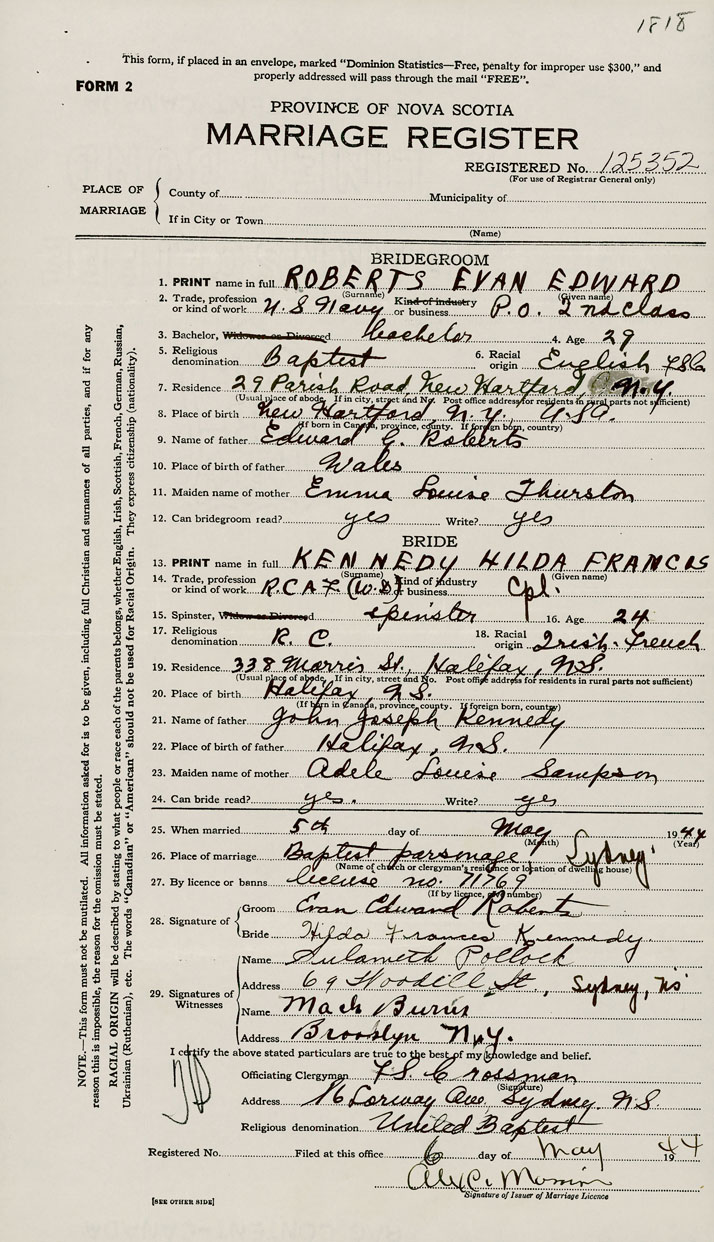 1818
This form, if placed in an envelope, marked "Dominion Statistics—Free, penalty for improper use $300," and
properly addressed will pass through the mail "FREE".
FORM 2
PROVINCE OF NOVA SCOTIA
MARRIAGE REGISTER
REGISTERED No. 125352
(For use of Registrar General only)
PLACE OF MARRIAGE
County of Municipality of
If in City or Town
(Name)
BRIDEGROOM
1. PRINT name in full ROBERTS EVAN EDWARD
(Surname) (Given name)
2. Trade, profession or kind of work U.S. Navy Kind of industry or business P.O. 2nd class
3. Bachelor, Widower or Divorced bachelor 4. Age 29
5. Religious denomination Baptist 6. Racial origin English
7. Residence 29 Parish Road, New Hartford, N.Y.
(Usual place of abode. If in city, street and No. Post office address for residents in rural parts not sufficient)
8. Place of birth New Hartford, N.Y., U.S.A.
(If born in Canada, province, county. If foreign born, country)
9. Name of father Edward G. Roberts
10. Place of birth of father Wales
11. Maiden name of mother Emma Louise Thurston
12. Can bridegroom read? yes Write? yes
BRIDE
13. PRINT name in full KENNEDY HILDA FRANCIS
(Surname) (Given name)
14. Trade, profession or kind of work R.C.A.F. (W.D.) Kind of industry or business Cpl.
15. Spinster, Widow or Divorced spinster 16. Age 24
17. Religious denomination R. C. 18. Racial origin Irish-French
19. Residence 338 Morris St., Halifax, N.S.
(Usual place of abode. If in city, street and No. Post office address for residents in rural parts not sufficient)
20. Place of birth Halifax, N.S.
(If born in Canada, province, county. If foreign born, country)
21. Name of father John Joseph Kennedy
22. Place of birth of father Halifax, N.S.
23. Maiden name of mother Adele Louise Sampson
24. Can bride read? yes. Write? yes
25. When married 5th day of May 1944
(Month) (Year)
26. Place of marriage Baptist parsonage, Sydney
(Name of church or clergyman's residence or location of dwelling house)
27. By licence or banns license no. 71769
(If by licence, give number)
28. Signature of
Groom Evan Edward Roberts
Bride Hilda Frances Kennedy
29. Signatures of Witnesses
Name Sulameth Pollock
Address 69 Woodill St., Sydney, NS
Name Mach Burns
Address Brooklyn N.Y.
I certify the above stated particulars are true to the best of my knowledge and belief.
Officiating Clergyman F.S. Crossman
(Signature)
Address 16 Lorway Ave, Sydney. N.S.
Religious denomination United Baptist
Registered No. Filed at this office 6 day of May 1944
Signature of Issuer of Marriage Licence
[SEE OTHER SIDE]
NOTE.—This form must not be mutilated. All information asked for is to be given, including full Christian and surnames of all parties, and if for any
reason this is impossible, the reason for the omission must be stated.
RACIAL ORIGIN will be described by stating to what people or race each of the parents belongs, whether English, Irish, Scottish, French, German, Russian,
Ukrainian (Ruthenian), etc. The words "Canadian" or "American" should not be used for Racial Origin. They express citizenship (nationality).